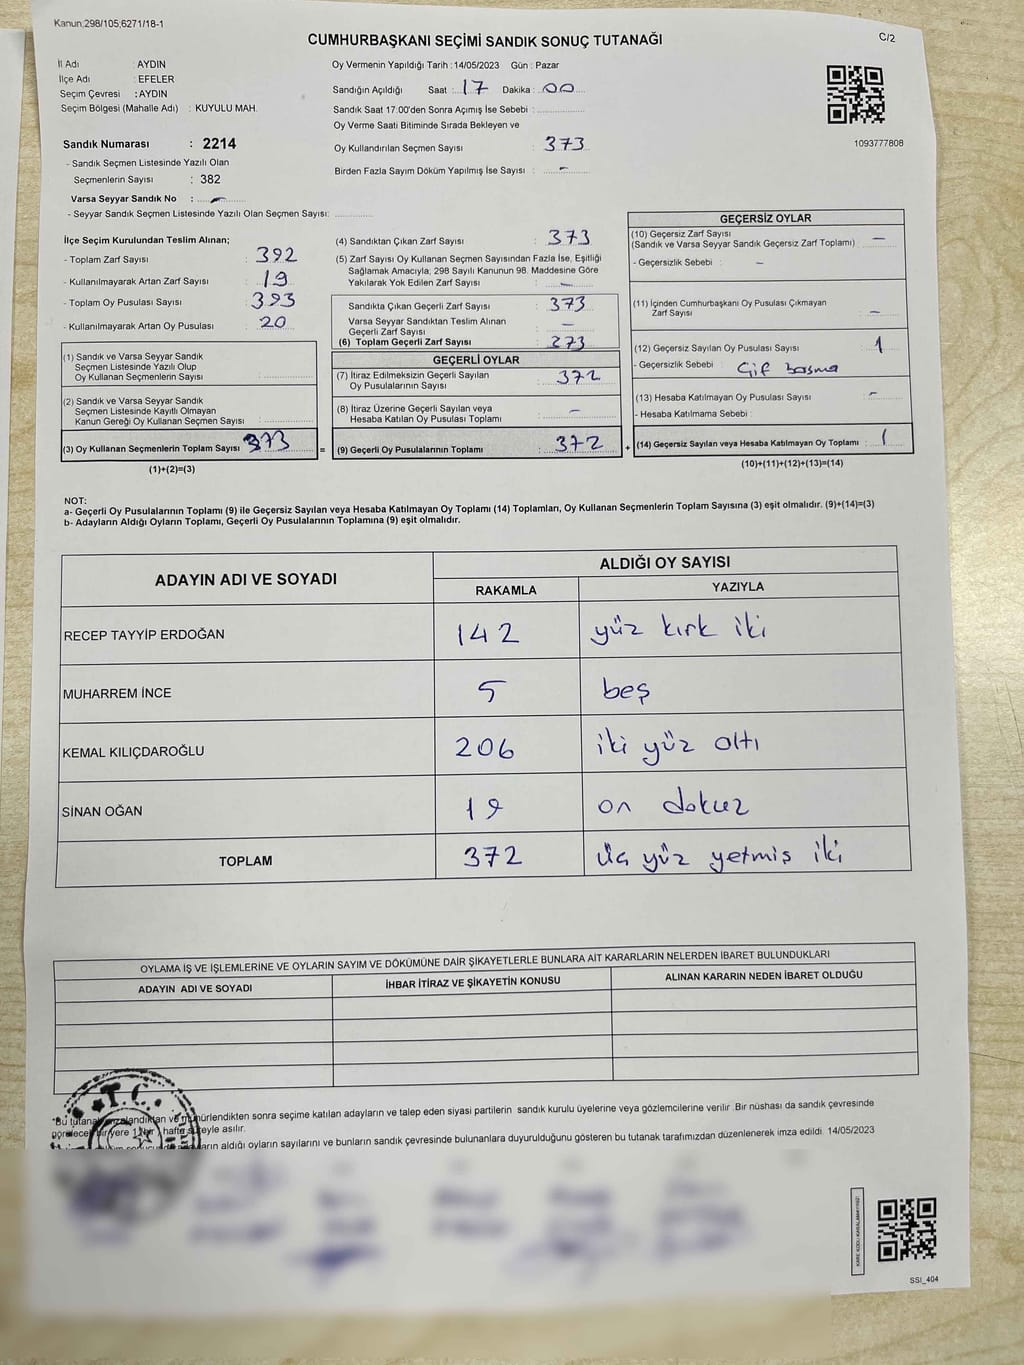 Kanun;298/105,6271/18-1
C/2
CUMHURBAŞKANI SEÇİMİ SANDIK SONUÇ TUTANAĞI
İl Adı : AYDIN
İlçe Adı : EFELER
Seçim Çevresi : AYDIN
Seçim Bölgesi (Mahalle Adı) : KUYULU MAH.
Oy Vermenin Yapıldığı Tarih : 14/05/2023 Gün : Pazar
Sandığın Açıldığı Saat : 17 Dakika : 00
Sandık Saat 17:00'den Sonra Açımış İse Sebebi :
Oy Verme Saati Bitiminde Sırada Bekleyen ve
Oy Kullandırılan Seçmen Sayısı : 373
Birden Fazla Sayım Döküm Yapılmış İse Sayısı : -
1093777808
Sandık Numarası : 2214
- Sandık Seçmen Listesinde Yazılı Olan
Seçmenlerin Sayısı : 382
Varsa Seyyar Sandık No : -
- Seyyar Sandık Seçmen Listesinde Yazılı Olan Seçmen Sayısı:
İlçe Seçim Kurulundan Teslim Alınan;
- Toplam Zarf Sayısı : 392
- Kullanılmayarak Artan Zarf Sayısı : 19
- Toplam Oy Pusulası Sayısı : 393
- Kullanılmayarak Artan Oy Pusulası : 20
(1) Sandık ve Varsa Seyyar Sandık
Seçmen Listesinde Yazılı Olup
Oy Kullanan Seçmenlerin Sayısı :
(2) Sandık ve Varsa Seyyar Sandık
Seçmen Listesinde Kayıtlı Olmayan
Kanun Gereği Oy Kullanan Seçmen Sayısı :
(3) Oy Kullanan Seçmenlerin Toplam Sayısı : 373
(1)+(2)=(3)
(4) Sandıktan Çıkan Zarf Sayısı : 373
(5) Zarf Sayısı Oy Kullanan Seçmen Sayısından Fazla İse, Eşitliği
Sağlamak Amacıyla; 298 Sayılı Kanunun 98. Maddesine Göre
Yakılarak Yok Edilen Zarf Sayısı : -
Sandıkta Çıkan Geçerli Zarf Sayısı : 373
Varsa Seyyar Sandıktan Teslim Alınan
Geçerli Zarf Sayısı : -
(6) Toplam Geçerli Zarf Sayısı : 273
GEÇERLİ OYLAR
(7) İtiraz Edilmeksizin Geçerli Sayılan
Oy Pusulalarının Sayısı : 372
(8) İtiraz Üzerine Geçerli Sayılan veya
Hesaba Katılan Oy Pusulası Toplamı : -
= (9) Geçerli Oy Pusulalarının Toplamı : 372 +
GEÇERSİZ OYLAR
(10) Geçersiz Zarf Sayısı
(Sandık ve Varsa Seyyar Sandık Geçersiz Zarf Toplamı) : -
- Geçersizlik Sebebi : -
(11) İçinden Cumhurbaşkanı Oy Pusulası Çıkmayan
Zarf Sayısı : -
(12) Geçersiz Sayılan Oy Pusulası Sayısı : 1
- Geçersizlik Sebebi : Çif basma
(13) Hesaba Katılmayan Oy Pusulası Sayısı : -
- Hesaba Katılmama Sebebi :
(14) Geçersiz Sayılan veya Hesaba Katılmayan Oy Toplamı : 1
(10)+(11)+(12)+(13)=(14)
NOT:
a- Geçerli Oy Pusulalarının Toplamı (9) ile Geçersiz Sayılan veya Hesaba Katılmayan Oy Toplamı (14) Toplamları, Oy Kullanan Seçmenlerin Toplam Sayısına (3) eşit olmalıdır. (9)+(14)=(3)
b- Adayların Aldığı Oyların Toplamı, Geçerli Oy Pusulalarının Toplamına (9) eşit olmalıdır.
ADAYIN ADI VE SOYADI
ALDIĞI OY SAYISI
RAKAMLA YAZIYLA
RECEP TAYYİP ERDOĞAN 142 yüz kırk iki
MUHARREM İNCE 5 beş
KEMAL KILIÇDAROĞLU 206 iki yüz altı
SİNAN OĞAN 19 on dokuz
TOPLAM 372 üç yüz yetmiş iki
OYLAMA İŞ VE İŞLEMLERİNE VE OYLARIN SAYIM VE DÖKÜMÜNE DAİR ŞİKAYETLERLE BUNLARA AİT KARARLARIN NELERDEN İBARET BULUNDUKLARI
ADAYIN ADI VE SOYADI İHBAR İTİRAZ VE ŞİKAYETİN KONUSU ALINAN KARARIN NEDEN İBARET OLDUĞU
T.C.
*Bu tutanak ve mühürlendikten sonra seçime katılan adayların ve talep eden siyasi partilerin sandık kurulu üyelerine veya gözlemcilerine verilir .Bir nüshası da sandık çevresinde
görülecek bir yere 1 hafta süreyle asılır.
aldığı oyların sayılarını ve bunların sandık çevresinde bulunanlara duyurulduğunu gösteren bu tutanak tarafımızdan düzenlenerek imza edildi. 14/05/2023
SSI_404